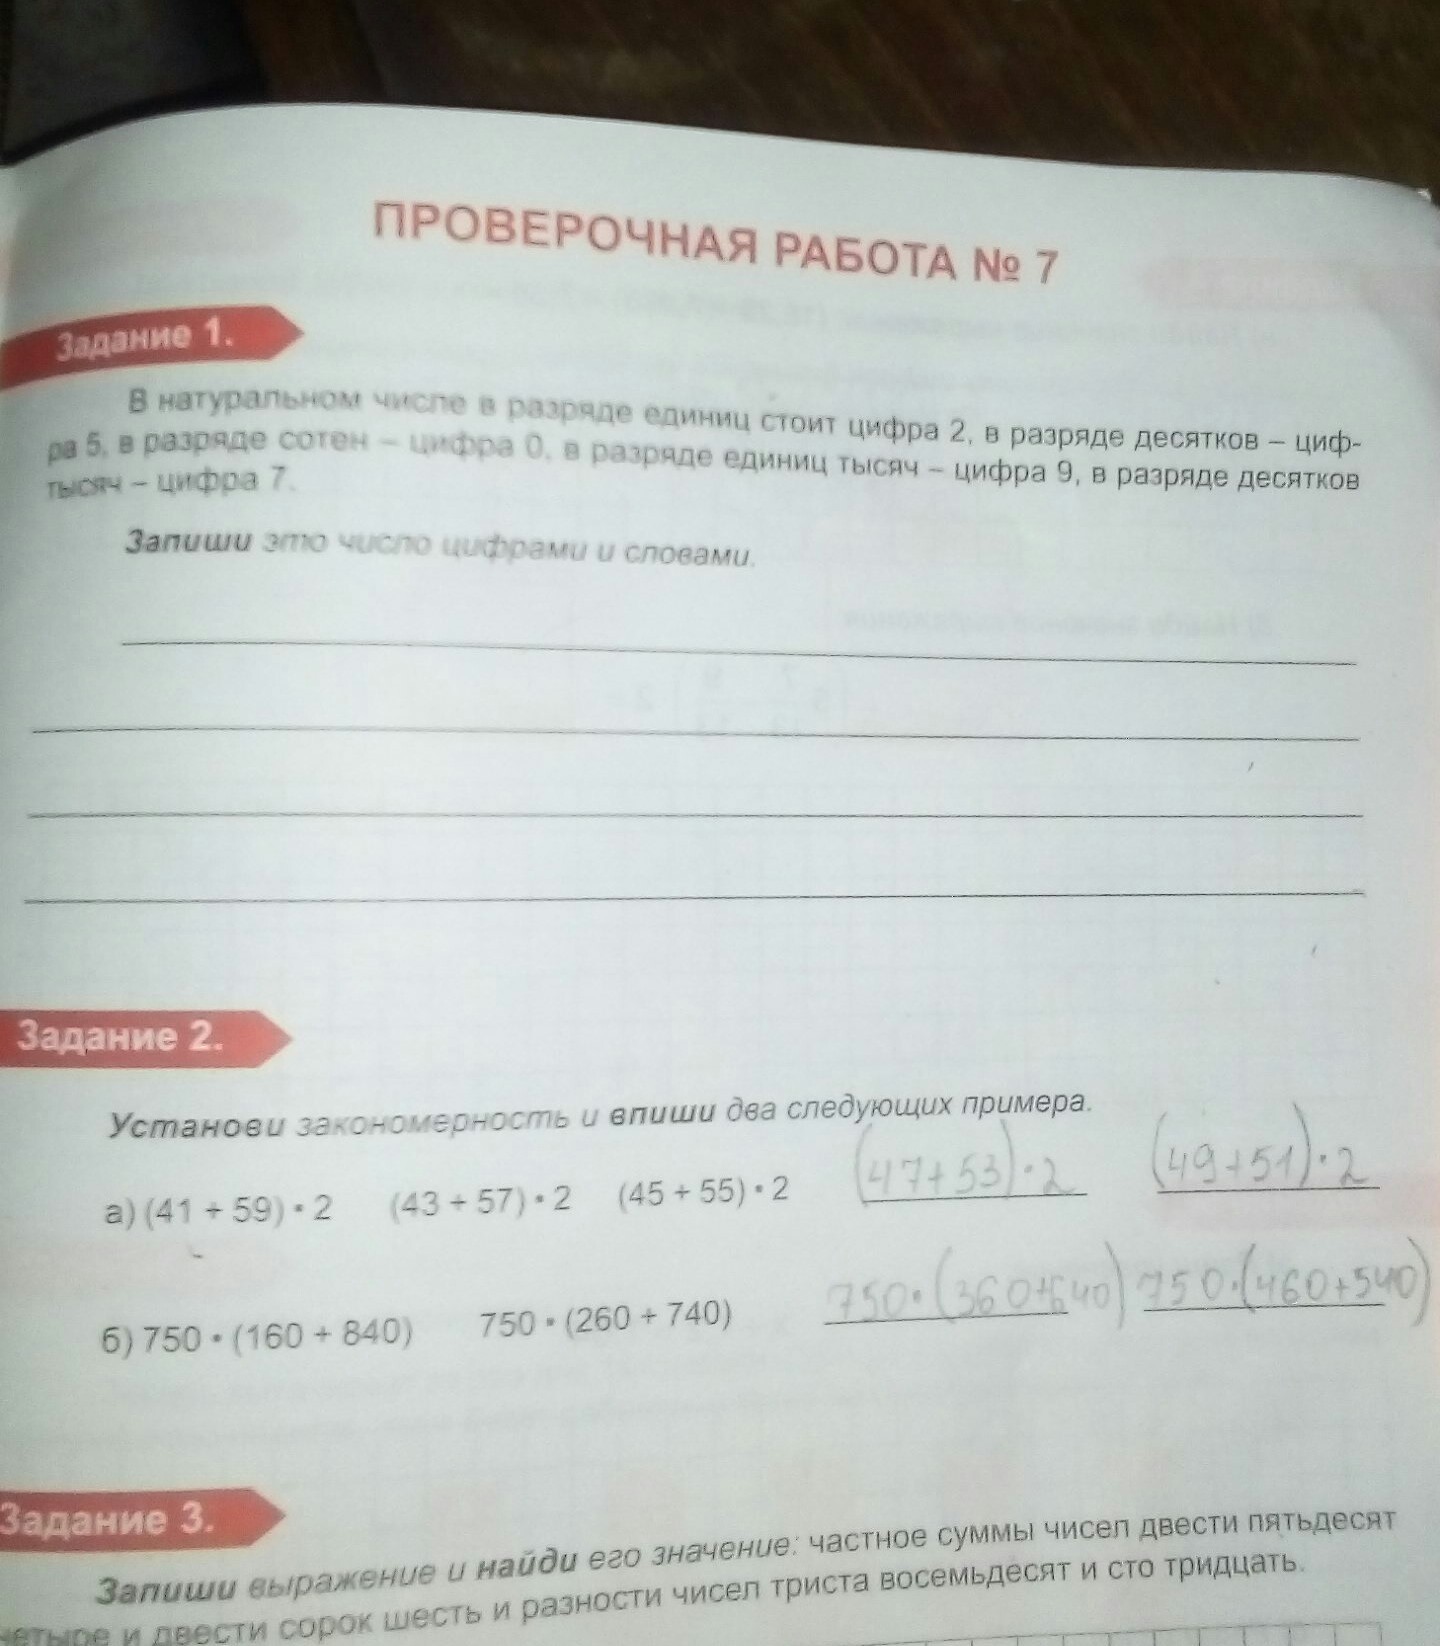 ПРОВЕРОЧНАЯ РАБОТА № 7
Задание 1.
В натуральном числе в разряде единиц стоит цифра 2, в разряде десятков – циф-
ра 5, в разряде сотен – цифра 0, в разряде единиц тысяч – цифра 9, в разряде десятков
тысяч – цифра 7.
Запиши это число цифрами и словами.
Задание 2.
Установи закономерность и впиши два следующих примера.
а) (41 + 59) • 2 (43 + 57) • 2 (45 + 55) • 2 (47+53)•2 (49+51)•2
б) 750 • (160 + 840) 750 • (260 + 740) 750•(360+640) 750•(460+540)
Задание 3.
Запиши выражение и найди его значение: частное суммы чисел двести пятьдесят
четыре и двести сорок шесть и разности чисел триста восемьдесят и сто тридцать.